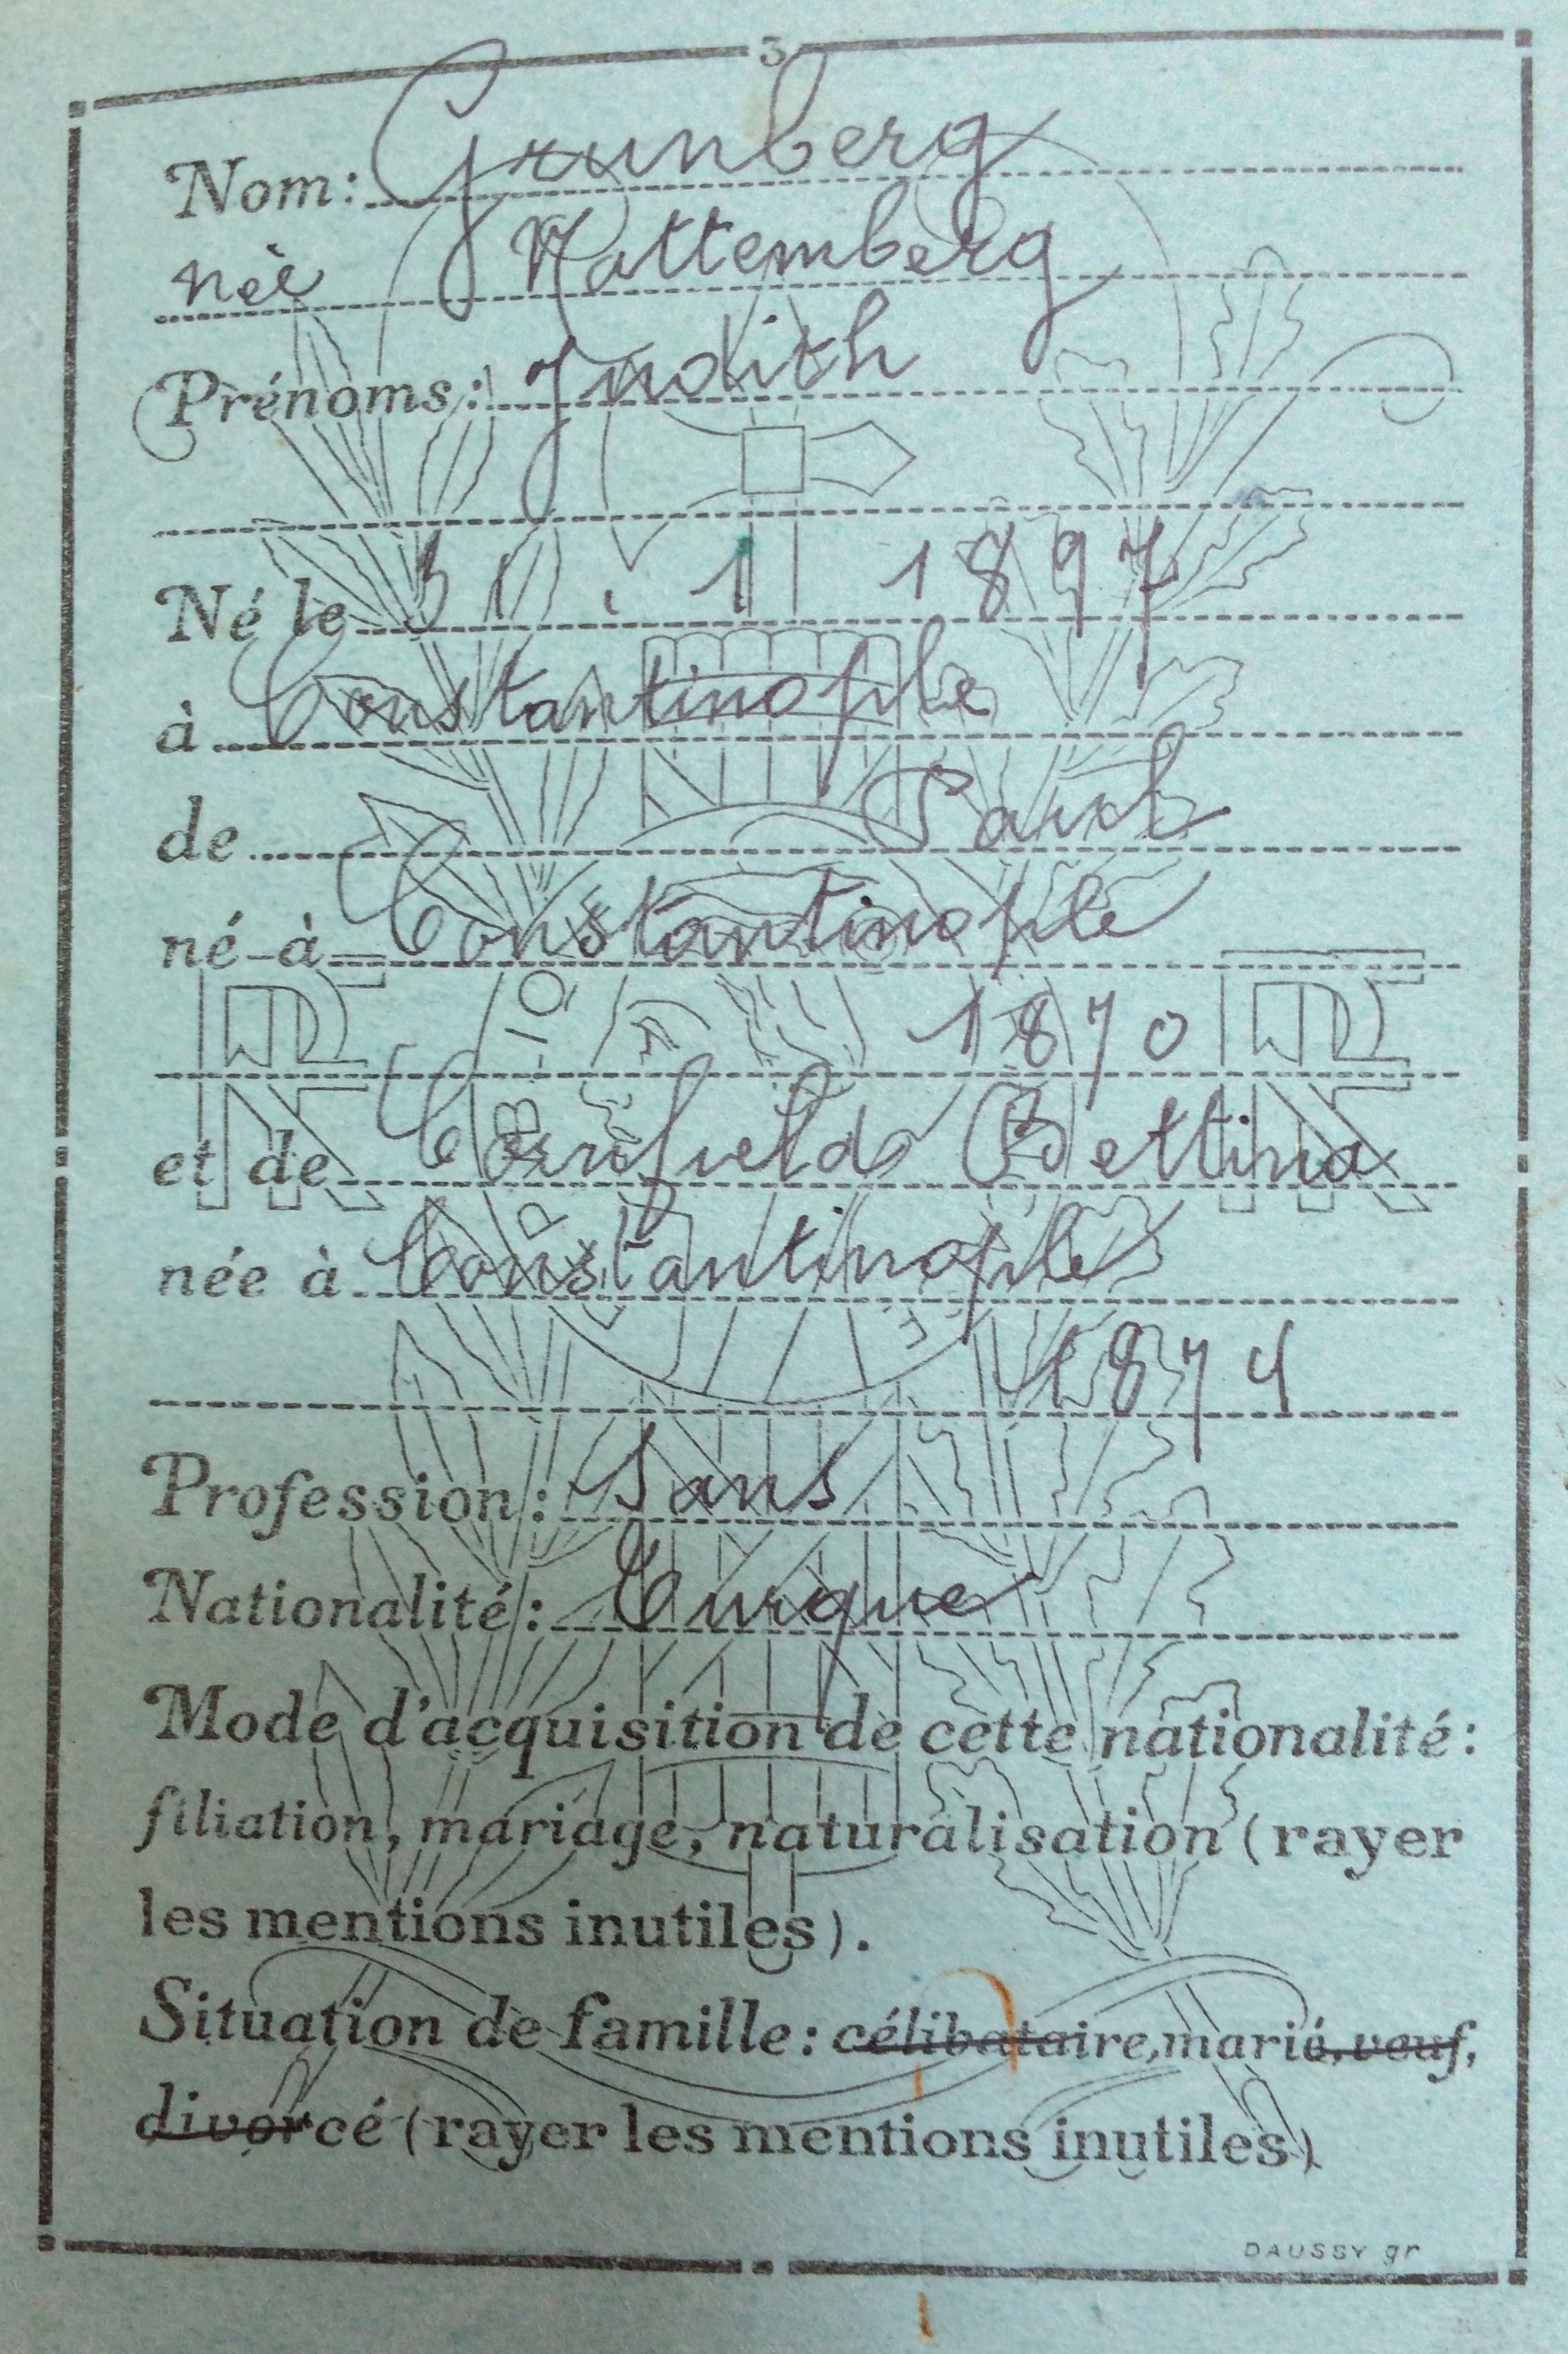 3
Nom: Grunberg
née Rattemberg
Prénoms: Judith
Né le 31 . 1 1897
à Constantinople
de
né à Constantinople
1870
et de Bettina
née à Constantinople
1874
Profession: Sans
Nationalité: Turque
Mode d'acquisition de cette nationalité:
filiation, mariage, naturalisation (rayer
les mentions inutiles).
Situation de famille: célibataire, marié, veuf,
divorcé (rayer les mentions inutiles)
DAUSSY gr